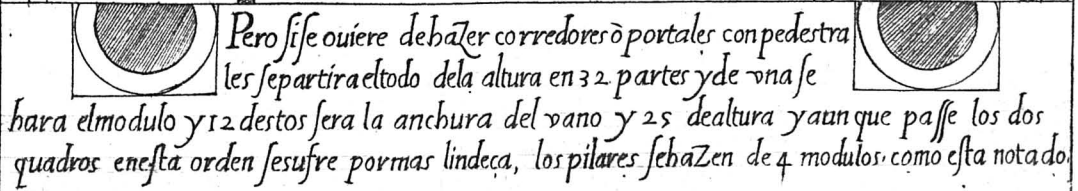 Pero si se ouiere de hazer corredores ò portales con pedestra
les se partira el todo de la altura en 32 partes y de vna se
hara el modulo y 12 destos sera la anchura del vano y 25 de altura y aun que passe los dos
quadros en esta orden se sufre por mas lindeça, los pilares se hazen de 4 modulos. como esta notado.